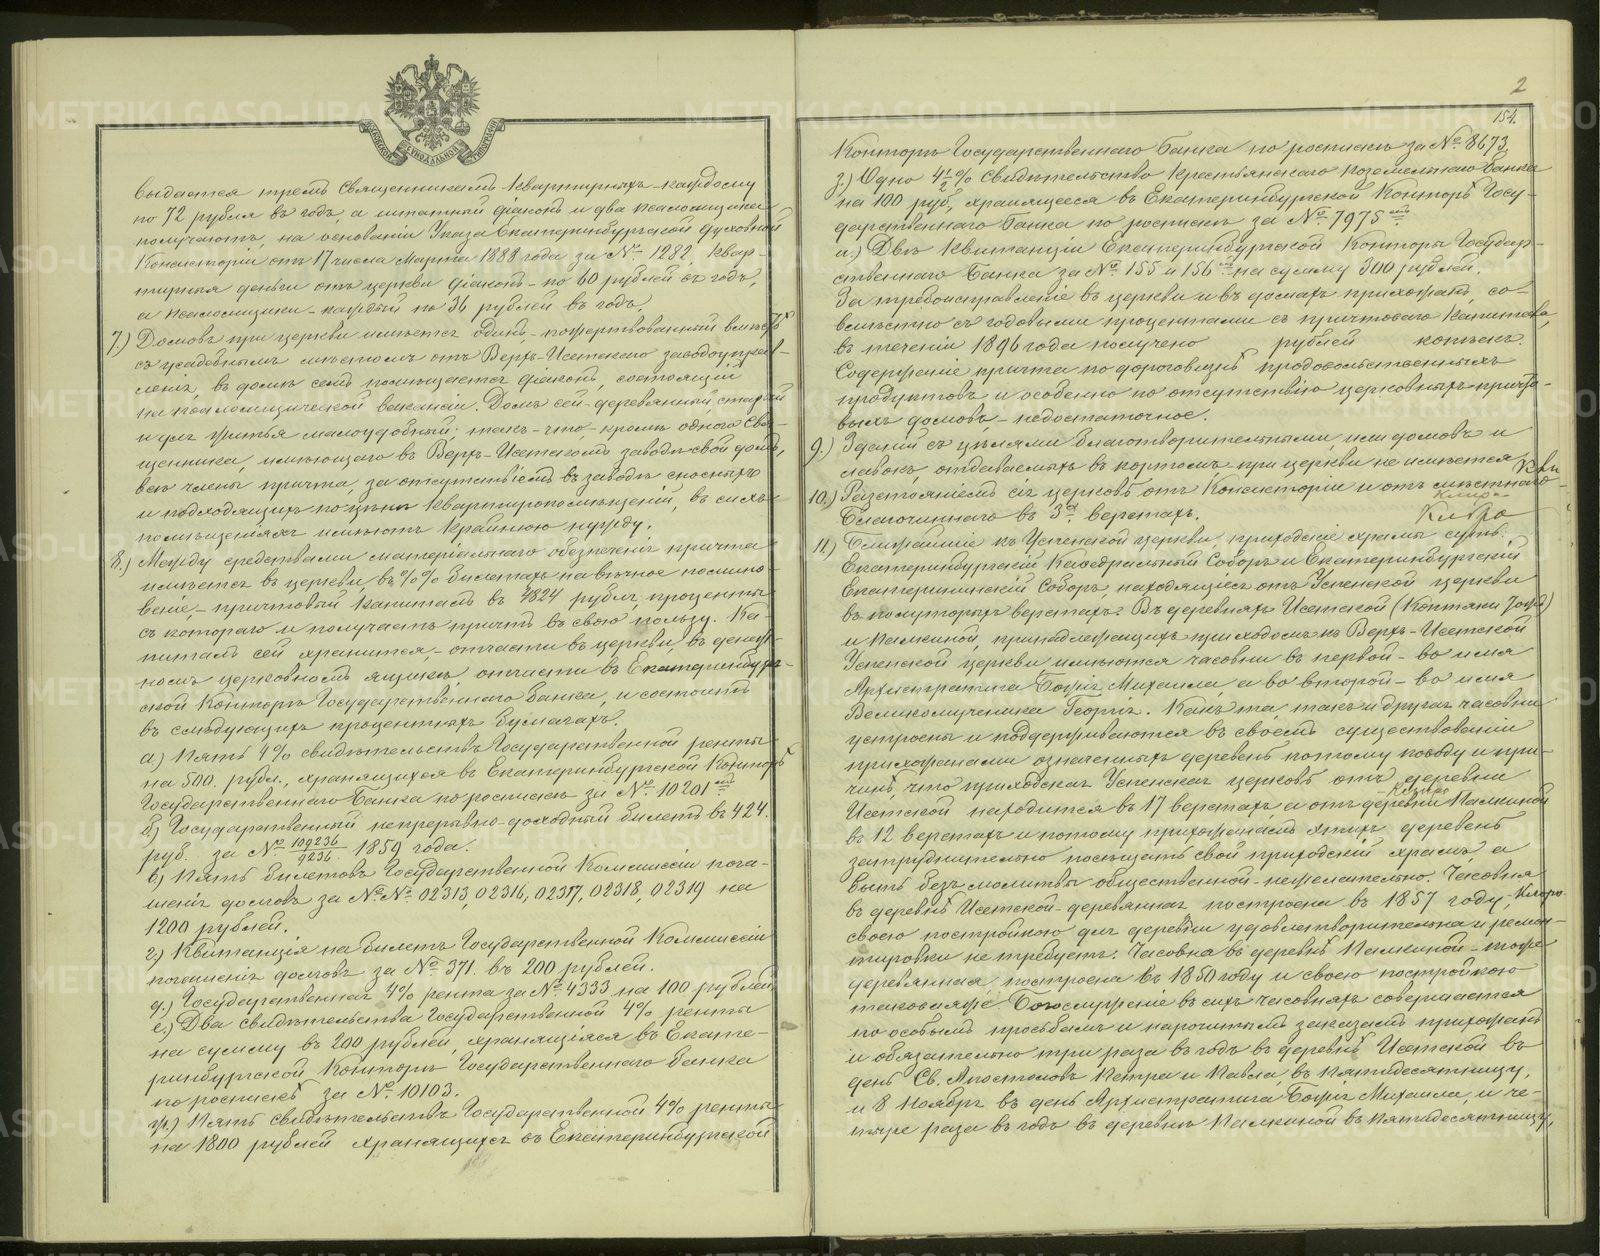 МОСКОВСКОЙ СѴНОДАЛЬНОЙ ТИПОГРАФІИ
выдается тремъ Священникамъ квартирныхъ – каждому
по 72 рубля въ годъ, а штатный діаконъ и два псаломщика
получаютъ, на основаніи Указа Екатеринбургской Духовной
Консисторіи отъ 17 числа Марта 1888 года за № 1282, квар-
тирныя деньги отъ церкви діаконъ – по 60 рублей въ годъ,
а псаломщики – каждый по 36 рублей въ годъ.
7.) Домовъ при церкви имѣется одинъ – пожертвованный вмѣстѣ
съ усадебнымъ мѣстомъ отъ Верхъ-Исетскаго заводоуправ-
ленія, въ домѣ семъ помѣщается діаконъ, состоящій
на псаломщической вакансіи. Домъ сей – деревянный, старый
и для житья малоудобный; такъ – что – кромѣ одного Свя-
щенника, имѣющаго въ Верхъ-Исетскомъ заводѣ свой домъ,
всѣ члены причта, за отсутствіемъ въ заводѣ сносныхъ
и подходящихъ по цѣнѣ квартиропомѣщеній, въ сихъ
помѣщеніяхъ имѣютъ крайнюю нужду.
8.) Между средствами матеріальнаго обезпеченія причта
имѣется въ церкви, въ %% билетахъ на вѣчное помино-
веніе, – причтовый капиталъ въ 4824 рубля, проценты
съ котораго и получаетъ причтъ въ свою пользу. Ка-
питалъ сей хранится, – отчасти въ церкви, въ денеж-
номъ церковномъ ящикѣ, отчасти въ Екатеринбург-
ской Конторѣ Государственнаго Банка, и состоитъ
въ слѣдующихъ процентныхъ бумагахъ.
а) Пять 4% свидѣтельствъ Государственной ренты
на 500. рубл., хранящихся въ Екатеринбургской Конторѣ
Государственнаго Банка по роспискѣ за № 10201мъ
б) Государственный непрерывно-доходный билетъ въ 424.
руб. за № 109236/9236. 1859 года.
в) Пять билетовъ Государственной Коммиссіи пога-
шенія долговъ за №№ 02313, 02316, 02317, 02318, 02319 на
1200 рублей.
г) Квитанція на билетъ Государственной Коммиссіи
погашенія долговъ за № 371. въ 200 рублей.
д.) Государственная 4% рента за № 4333 на 100 рублей
е.) Два свидѣтельства Государственной 4% ренты
на сумму въ 200 рублей, хранящіяся въ Екате-
ринбургской Конторѣ Государственнаго Банка
по роспискѣ за № 10103.
ж.) Пять свидѣтельствъ Государственной 4% ренты
на 1800 рублей хранящихся въ Екатеринбургской
2
154.
Конторѣ Государственнаго Банка по роспискѣ за № 8673.
з.) Одно 4½% свидѣтельство Крестьянскаго Поземельнаго Банка
на 100 руб., хранящееся въ Екатеринбургской Конторѣ Госу-
дарственнаго Банка по роспискѣ за № 7975мъ
и.) Двѣ квитанціи Екатеринбургской Конторы Государ-
ственнаго Банка за № 155 и 156мъ на сумму 300 рублей.
За требоисправленіе въ церкви и въ домахъ прихожанъ, со-
вмѣстно съ годовыми процентами съ причтоваго капитала,
въ теченіи 1896 года получено рублей копѣекъ.
Содержаніе причта по дороговизнѣ продовольственныхъ
продуктовъ и особенно по отсутствію церковныхъ причто-
выхъ домовъ, – недостаточное.
9.) Зданій съ цѣлями благотворительными, или домовъ и
лавокъ, отдаваемыхъ въ кортомъ при церкви не имѣется.
10.) Разстояніемъ сія церковь отъ Консисторіи и отъ мѣстнаго
Благочиннаго въ 3х верстахъ.
11.) Ближайшіе къ Успенской церкви приходскіе храмы суть:
Екатеринбургскій Каѳедральный Соборъ и Екатеринбургскій
Екатерининскій Соборъ, находящіеся отъ Успенской церкви
въ полуторыхъ верстахъ. Въ деревняхъ Исетской (Коптяки тожъ)
и Палкиной, принадлежащихъ приходомъ къ Верхъ-Исетской
Успенской церкви имѣются часовни въ первой – во имя
Архистратига Божія Михаила, а во второй – во имя
Великомученика Георгія. Какъ та, такъ и другая часовни
устроены и поддерживаются въ своемъ существованіи
прихожанами означенныхъ деревень потому поводу и при-
чинѣ, что приходская Успенская церковь отъ деревни
Исетской находится въ 17 верстахъ, а отъ деревни Палкиной
въ 12 верстахъ и потому прихожанамъ этихъ деревень
затруднительно посѣщать свой приходскій храмъ, а
быть безъ молитвы общественной – нежелательно. Часовня
въ деревнѣ Исетской – деревянная построена въ 1857 году,
своею постройкою для деревни удовлетворительна и ремон-
тировки не требуетъ. Часовня въ деревнѣ Палкиной – тоже
деревянная, построена въ 1850 году и своею постройкою
таковая же. Богослуженіе въ сихъ часовняхъ совершается
по особымъ просьбамъ и нарочитымъ заказамъ прихожанъ
и обязательно три раза въ годъ въ деревнѣ Исетской въ
день Св. Апостоловъ Петра и Павла, въ Пятидесятницу,
и 8 Ноября въ день Архистратига Божія Михаила, и че-
тыре раза въ годъ въ деревнѣ Палкиной въ Пятидесятницу,
METRIKI.GASO-URAL.RU